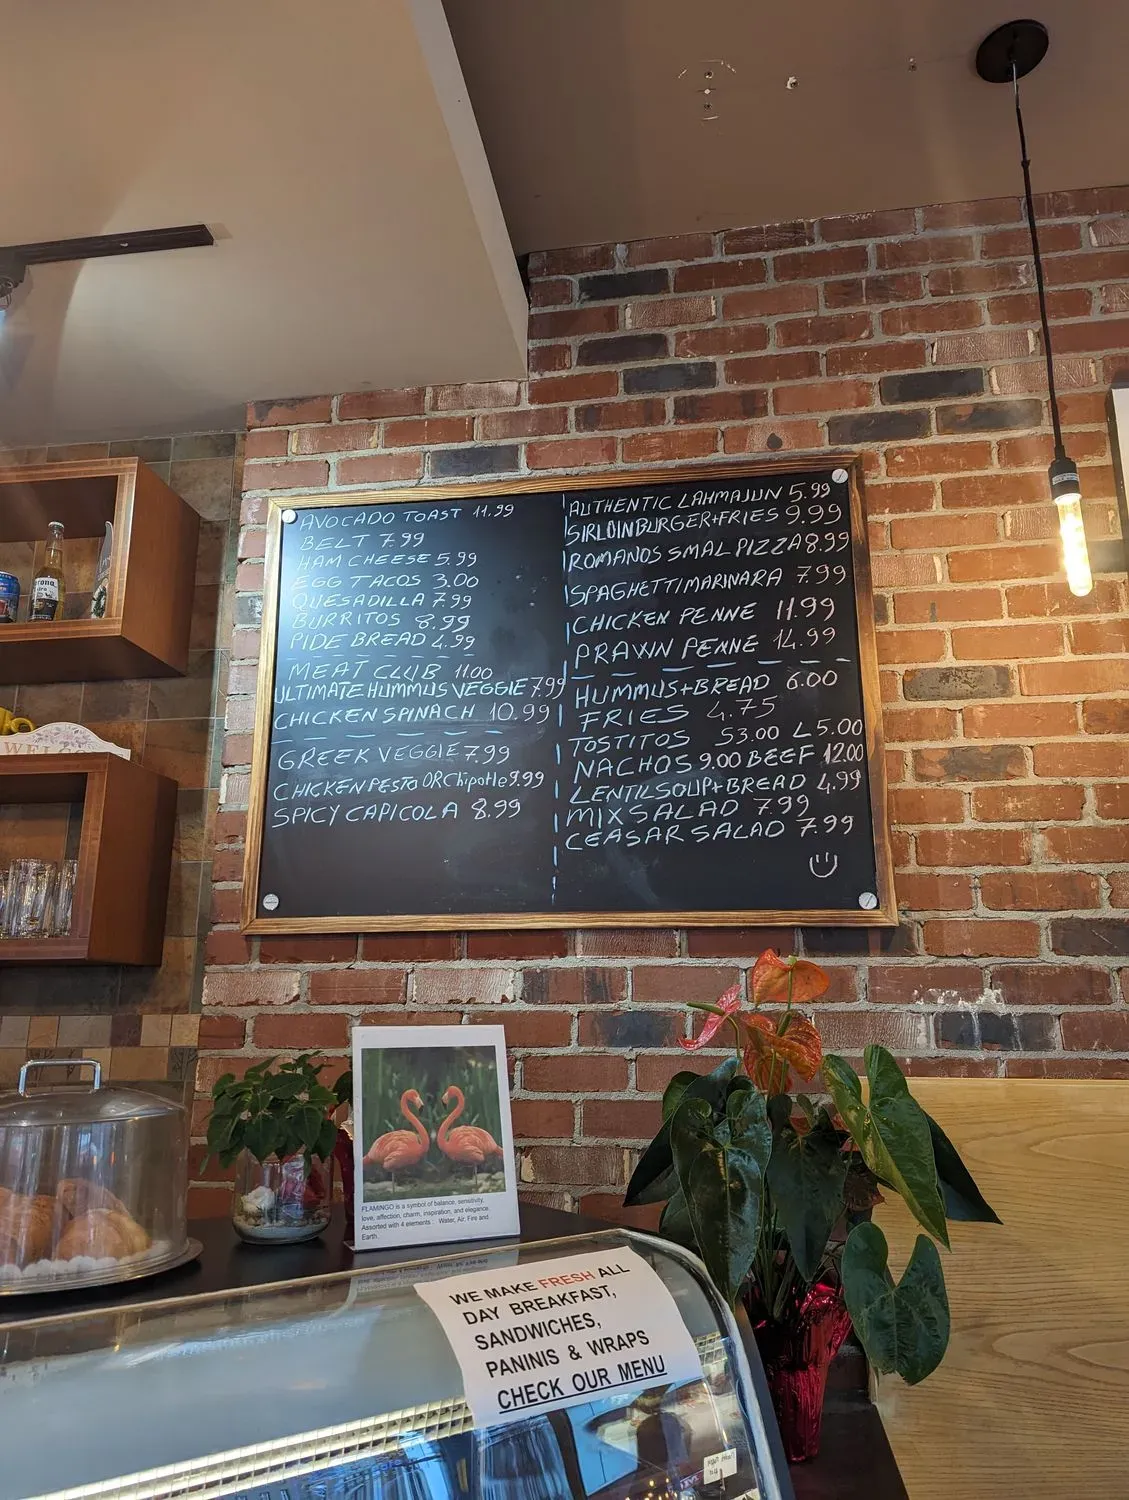 AVOCADO TOAST 11.99
BELT 7.99
HAM CHEESE 5.99
EGG TACOS 3.00
QUESADILLA 7.99
BURRITOS 8.99
PIDE BREAD 4.99
MEAT CLUB 11.00
ULTIMATE HUMMUS VEGGIE 7.99
CHICKEN SPINACH 10.99
GREEK VEGGIE 7.99
CHICKEN PESTO OR Chipotle 9.99
SPICY CAPICOLA 8.99
AUTHENTIC LAHMAJUN 5.99
SIRLOIN BURGER+FRIES 9.99
ROMANOS SMAL PIZZA 8.99
SPAGHETTI MARINARA 7.99
CHICKEN PENNE 11.99
PRAWN PENNE 14.99
HUMMUS+BREAD 6.00
FRIES 4.75
TOSTITOS S3.00 L5.00
NACHOS 9.00 BEEF 12.00
LENTILSOUP+BREAD 4.99
MIX SALAD 7.99
CEASAR SALAD 7.99
WEL
Corona
FLAMINGO is a symbol of balance, sensitivity,
love, affection, charm, inspiration, and elegance.
Assorted with 4 elements : Water, Air, Fire and
Earth.
WE MAKE FRESH ALL
DAY BREAKFAST,
SANDWICHES,
PANINIS & WRAPS
CHECK OUR MENU